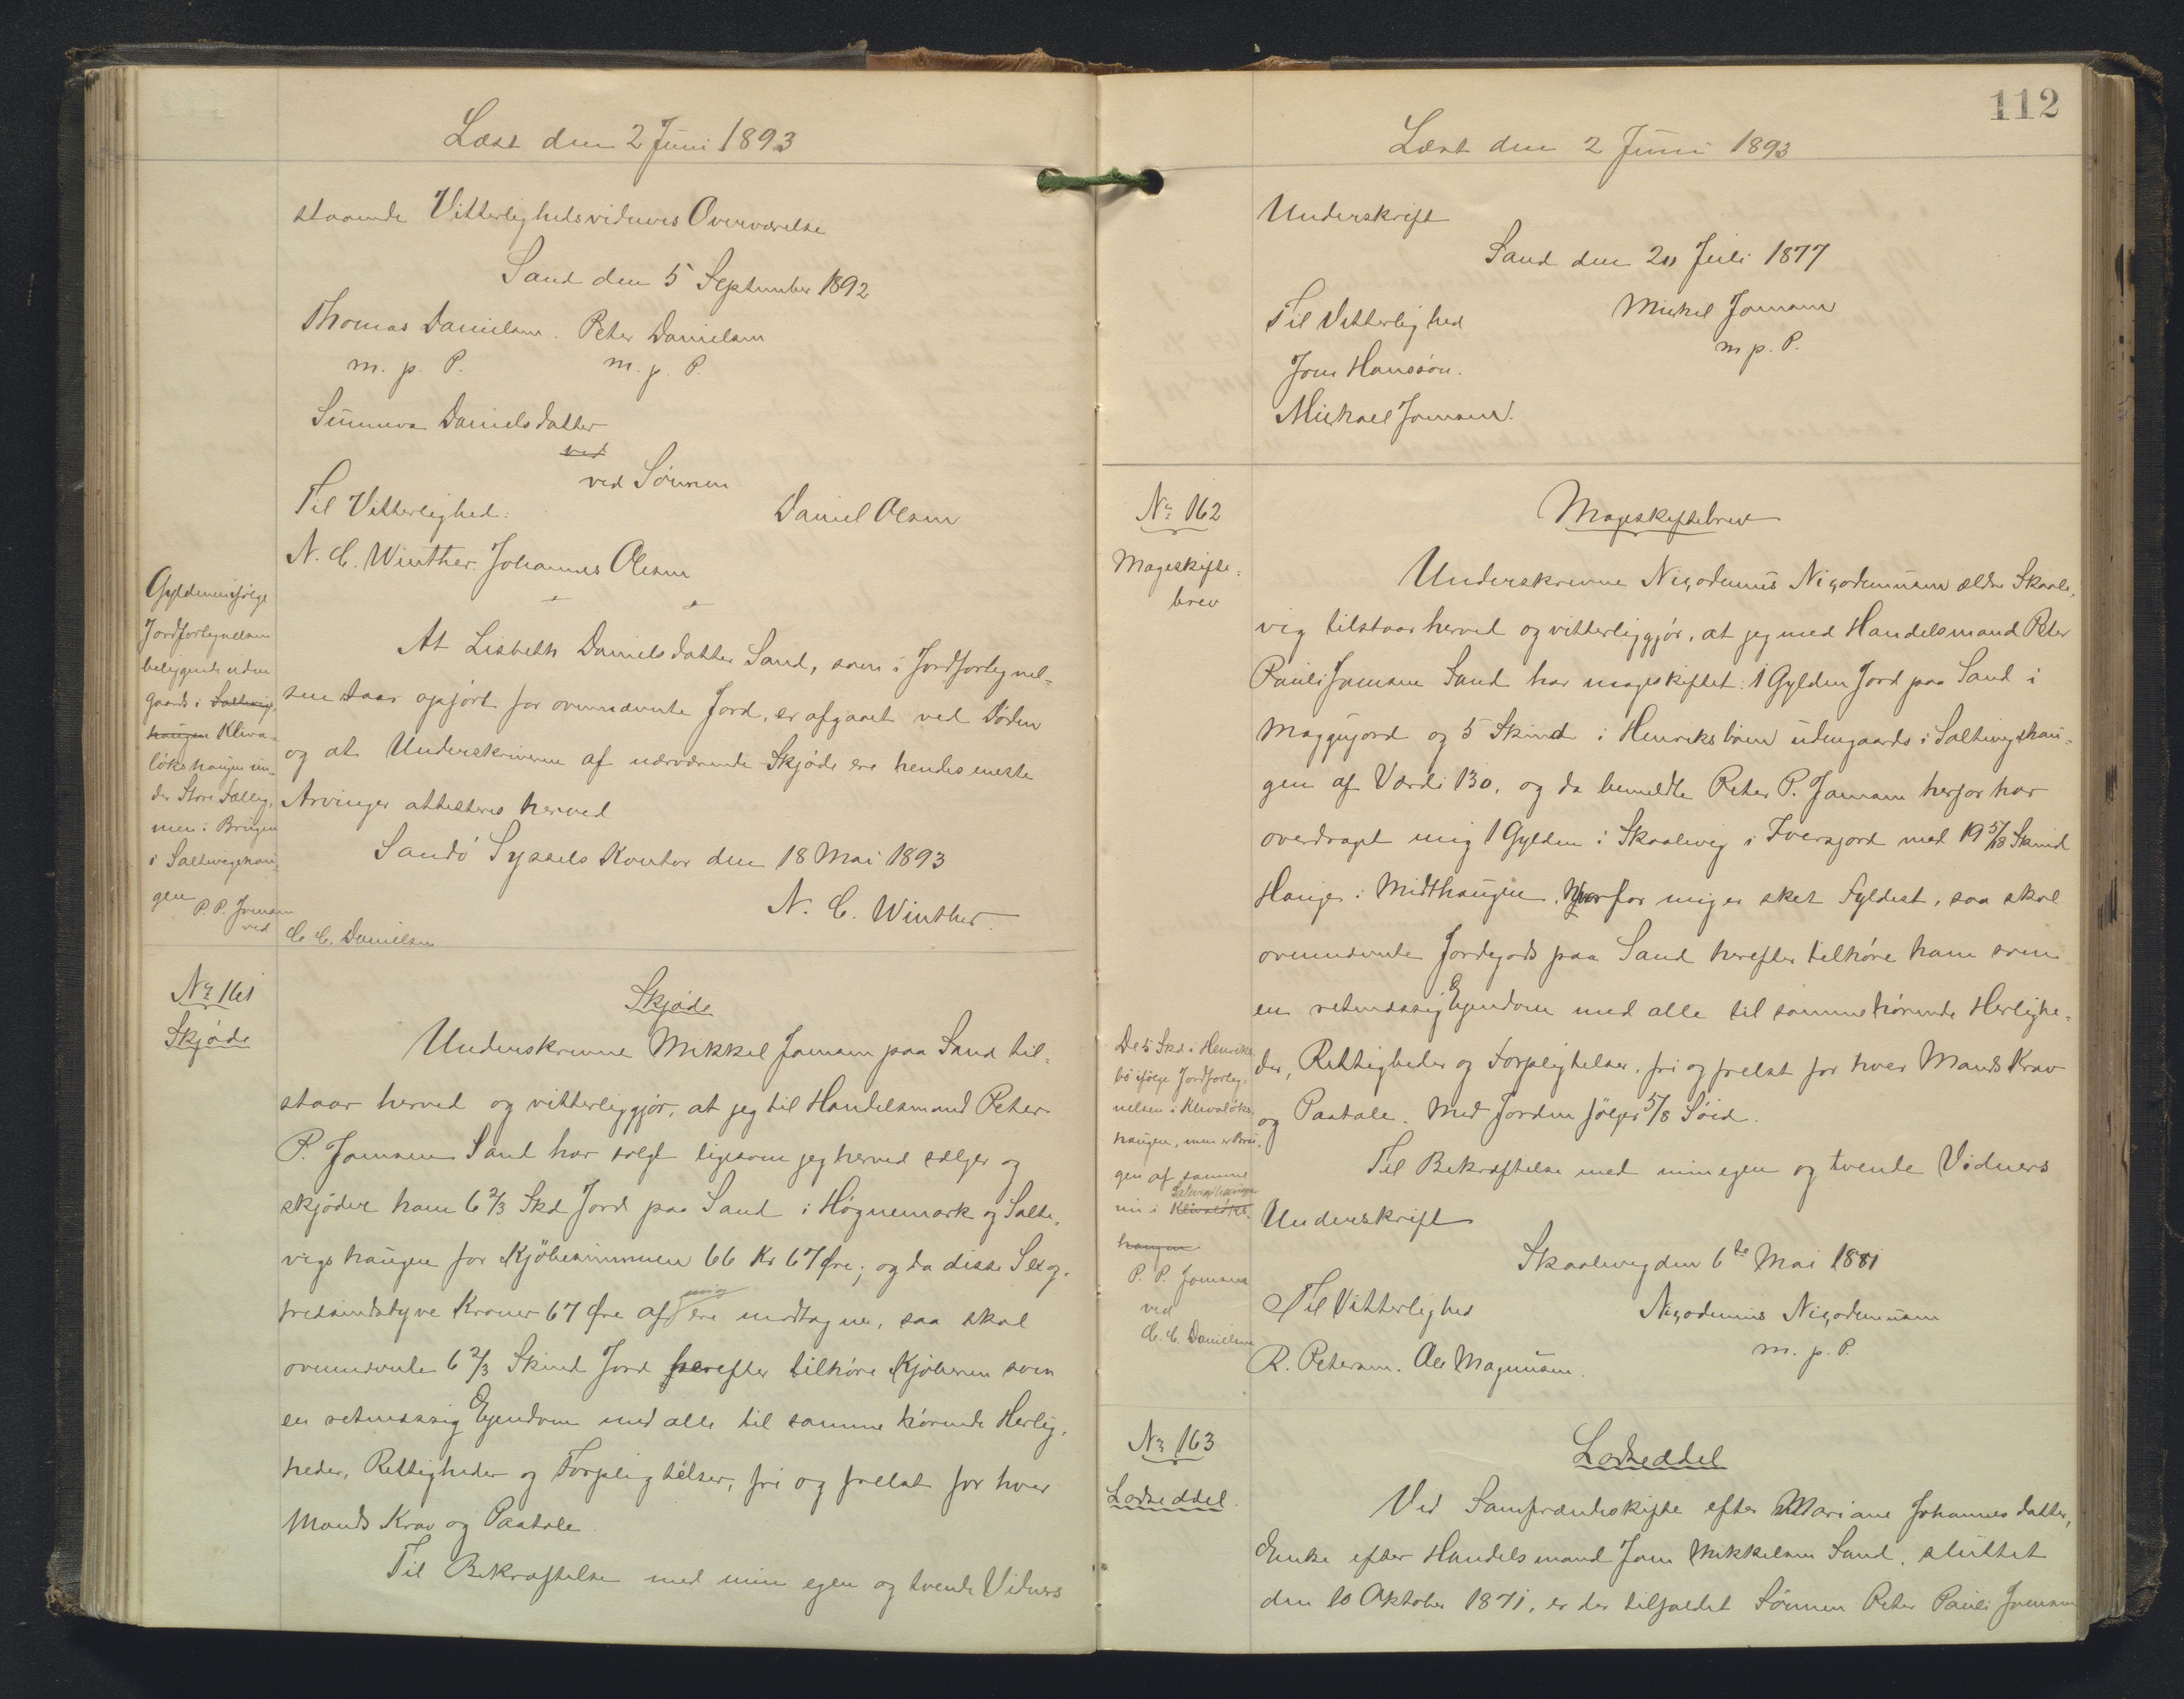 Læst den 2 Juni 1893
staaende Vitterlighedsvidners Overværelse
Sand den 5 September 1892
Thomas Danielsen. Peter Danielsen
m. p. P. m. p. P.
Sunneva Danielsdatter
ved
ved Sønnen
Til Vitterlighed: Daniel Olsen
N. C. Winther. Johannes Olesen
At Lisbeth Danielsdatter Sand, som i Jordfortegnel-
sen staar opført for ovennævnte Jord, er afgaaet ved Døden
og at Underskriverne af nærværende Skjøde ere hendes eneste
Arvinger attesteres herved
Sandö Syssels Kontor den 18 Mai 1893
N. C. Winther.
Gylden ifølge
Jordfortegnelsen
beliggende uden
gaards i Saltvigs
haugen Kliva-
løkshaugen un-
der Store Fællig,
men i Brugen
i Saltvigshau-
gen
P. P. Joensen
ved
C. C. Danielsen
Nr 161
Skjøde
Skjøde
Underskrevne Mikkel Joensen paa Sand til-
staar herved og vitterliggjør, at jeg til Handelsmand Peter
P. Joensen Sand har solgt ligesom jeg herved sælger og
skjøder ham 6 2/3 Skd Jord paa Sand i Høgnemark og Salte-
vigshaugen for Kjøbesummen 66 Kr 67 Øre; og da disse Sex og
tresindstyve Kroner 67 Øre af mig ere modtagne, saa skal
ovennævnte 6 2/3 Skind Jord herefter tilhøre Kjøberen som
en retmæssig Ejendom med alle til samme hørende Herlig-
heder, Rettigheder og Forpligtelser, fri og frelst for hver
Mands Krav og Paatale
Til Bekræftelse med min egen og tvende Vidners
112
Læst den 2 Juni 1893
Underskrift
Sand den 20 Juli 1877
Til Vitterlighed Mikkel Joensen
m. p. P.
Joen Hanssøn.
Michael Joensen.
Nr 162
Mageskifte-
brev
Mageskiftebrev
Underskrevne Niçodemus Niçodemusen ældre Skaale-
vig tilstaar herved og vitterliggjør, at jeg med Handelsmand Peter
Pauli Joensen Sand har mageskiftet: 1 Gylden Jord paa Sand i
Maggujord og 5 Skind i Henriksbøen udengaards i Saltvigshau-
gen af Værdi 130, og da bemeldte Peter P. Joensen herfor har
overdraget mig 1 Gylden i Skaalevig i Iversjord med 19 5/18 Skind
Hauge i Midthaugen. Hvorfor mig er sket Fyldest, saa skal
ovennævnte Jordegods paa Sand herefter tilhøre ham som
en retmæssig Ejendom med alle til samme hørende Herlighe-
der, Rettigheder og Forpligtelser, fri og frelst for hver Mands Krav
og Paatale. Med Jorden følger 5/8 Söid.
Til Bekræftelse med min egen og tvende Vidners
Underskrift
De 5 Skd i Henriks
bø ifølge Jordforteg-
nelsen i Klivaløks-
haugen, men er Bru-
gen af samme
nu i Klivaløks- Saltvigshaugen
haugen
P. P. Joensen
ved
C. C. Danielsen
Skaalevig den 6te Mai 1881
Til Vitterlighed Niçodemus Niçodemusen
m. p. P.
R. Petersen. Ole Magnusen.
Nr 163
Lodseddel.
Lodseddel
Ved Samfrændeskifte efter Mariane Johannesdatter,
Enke efter Handelsmand Joen Mikkelsen Sand, sluttet
den 10 Oktober 1871, er der tilfaldet Sønnen Peter Pauli Joensen